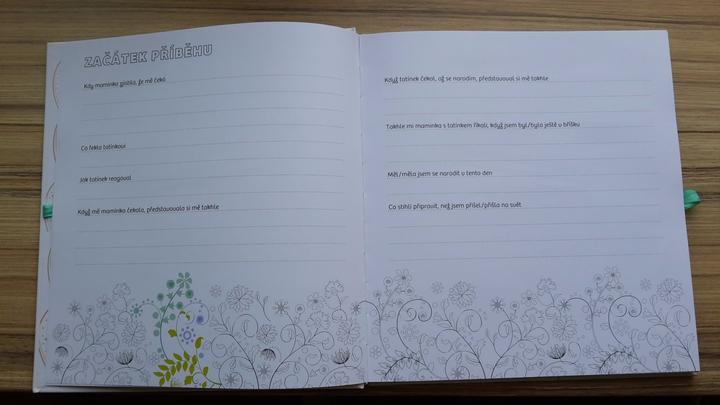 ZAČÁTEK PŘÍBĚHU
Kdy maminka zjistila, že mě čeká
Co řekla tatínkovi
Jak tatínek reagoval
Když mě maminka čekala, představovala si mě takhle
Když tatínek čekal, až se narodím, představoval si mě takhle
Takhle mi maminka s tatínkem říkali, když jsem byl/byla ještě v bříšku
Měl/měla jsem se narodit v tento den
Co stihli připravit, než jsem přišel/přišla na svět